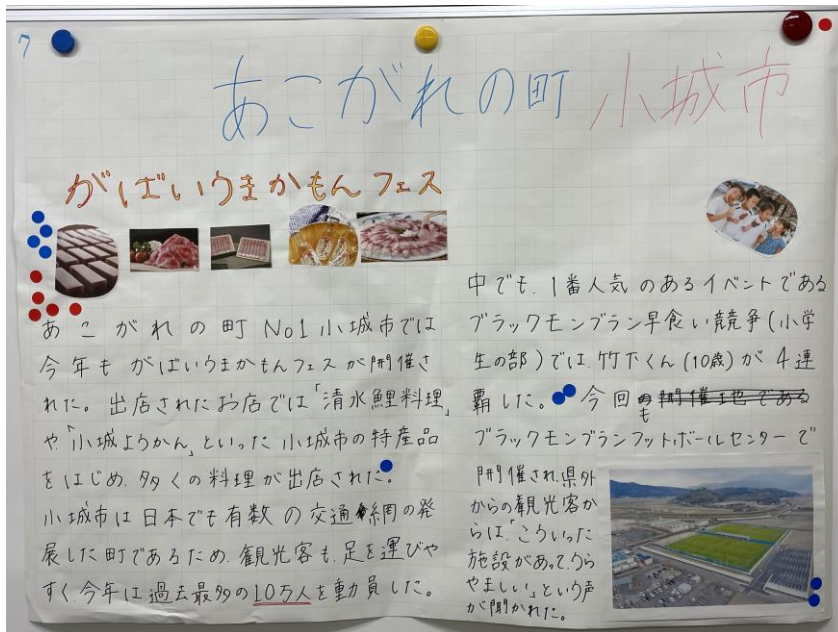 7
あこがれの町 小城市
がばいうまかもんフェス
あこがれの町 No1 小城市では
今年もがばいうまかもんフェスが開催さ
れた。出店されたお店では「清水鯉料理」
や「小城ようかん」といった小城市の特産品
をはじめ、多くの料理が出店された。
小城市は日本でも有数の交通網の発
展した町であるため、観光客も、足を運びや
すく、今年は過去最多の10万人を動員した。
中でも、1番人気のあるイベントである
ブラックモンブラン早食い競争(小学
生の部)では、竹下くん(10歳)が4連
覇した。今回も開催地である
ブラックモンブランフットボールセンターで
開催され、県外
からの観光客か
らは、「こういった
施設があって、うら
やましい」という声
が聞かれた。